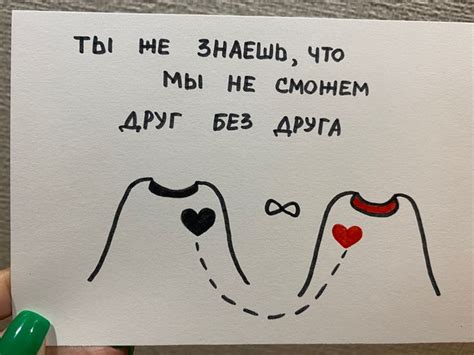 ТЫ ЖЕ ЗНАЕШЬ, ЧТО
МЫ НЕ СМОЖЕМ
ДРУГ БЕЗ ДРУГА